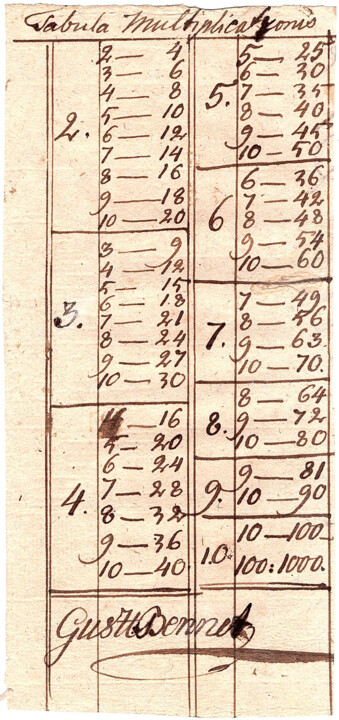 Tabula Multiplicationis
2.
2 — 4
3 — 6
4 — 8
5 — 10
6 — 12
7 — 14
8 — 16
9 — 18
10 — 20
3.
3 — 9
4 — 12
5 — 15
6 — 18
7 — 21
8 — 24
9 — 27
10 — 30
4.
4 — 16
5 — 20
6 — 24
7 — 28
8 — 32
9 — 36
10 — 40
5.
5 — 25
6 — 30
7 — 35
8 — 40
9 — 45
10 — 50
6
6 — 36
7 — 42
8 — 48
9 — 54
10 — 60
7.
7 — 49
8 — 56
9 — 63
10 — 70.
8.
8 — 64
9 — 72
10 — 80
9.
9 — 81
10 — 90
10.
10 — 100
100 : 1000.
Gustt Bennet